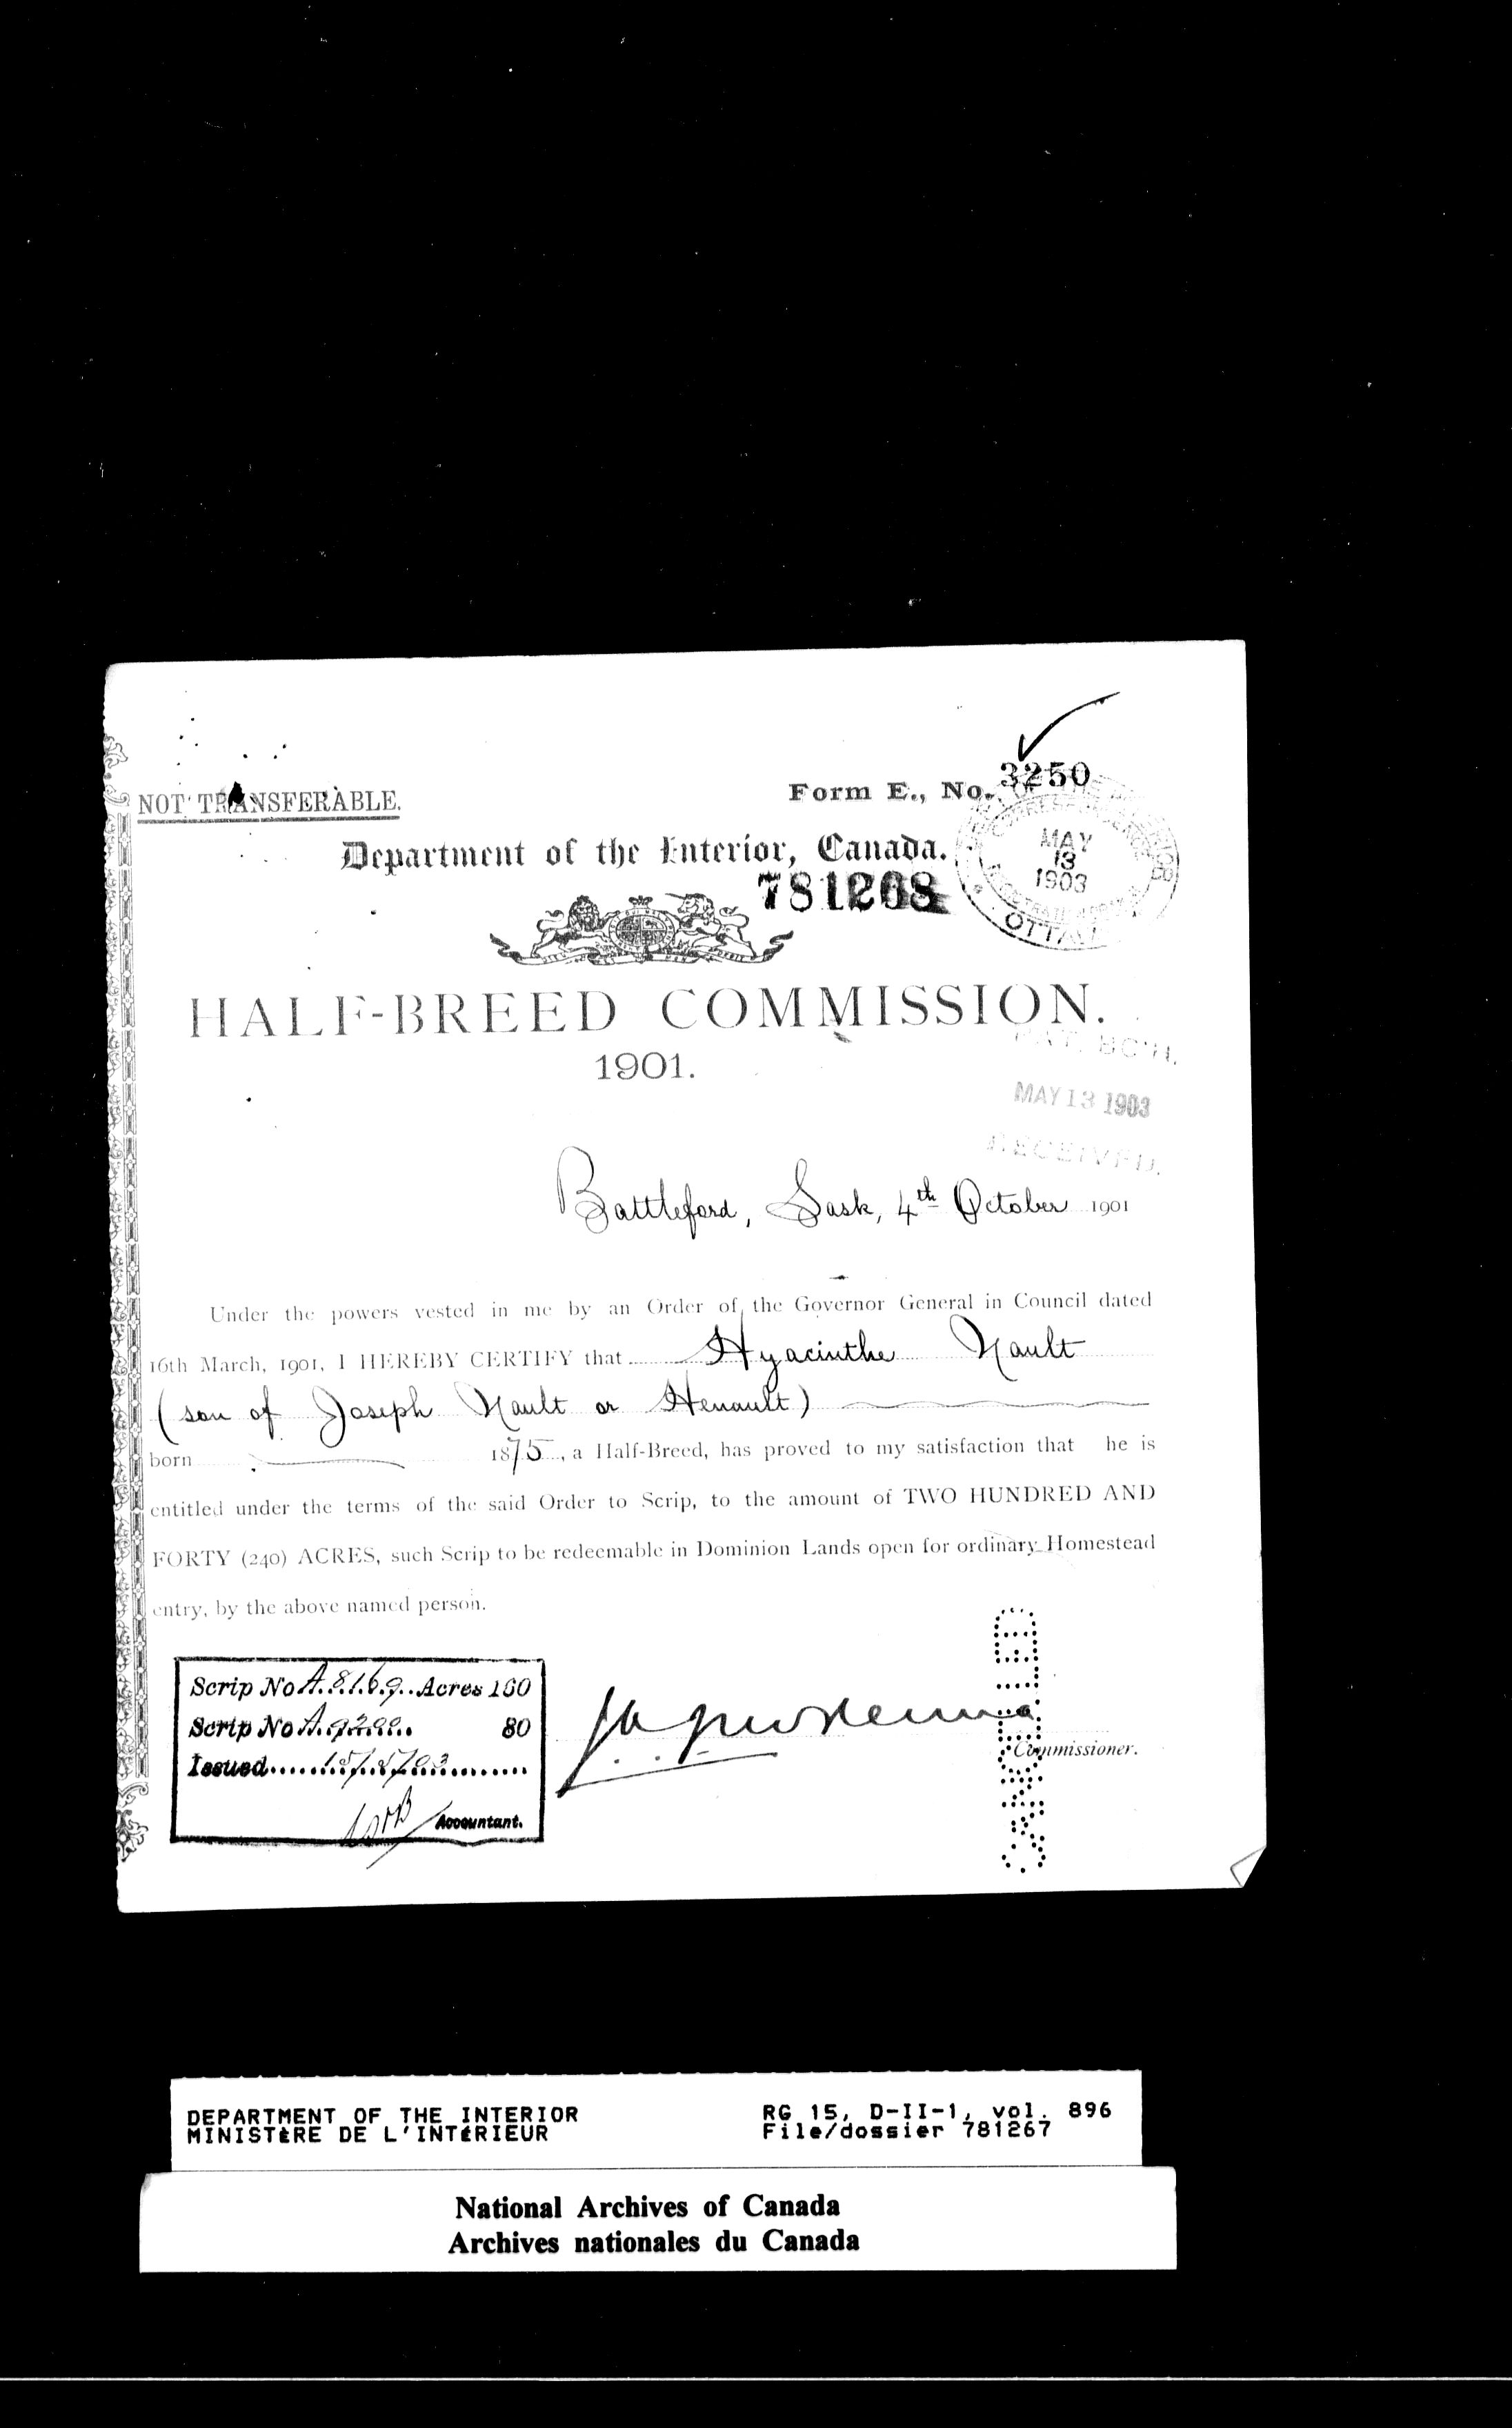 NOT TRANSFERABLE.
Form E., No. 3250
Department of the Interior, Canada.
MAY
13
1903
781268
HALF-BREED COMMISSION.
1901.
MAY 13 1903
RECEIVED.
Battleford, Sask, 4th October 1901
Under the powers vested in me by an Order of the Governor General in Council dated
16th March, 1901, I HEREBY CERTIFY that Hyacinthe Nault
(son of Joseph Nault or Henault)
born 1875, a Half-Breed, has proved to my satisfaction that he is
entitled under the terms of the said Order to Scrip, to the amount of TWO HUNDRED AND
FORTY (240) ACRES, such Scrip to be redeemable in Dominion Lands open for ordinary Homestead
entry, by the above named person.
Scrip No A.8169 Acres 160
Scrip No A. 80
Issued 15/5/03
Accountant.
Commissioner.
CANCELLED
DEPARTMENT OF THE INTERIOR
MINISTÈRE DE L'INTÉRIEUR
RG 15, D-II-1, vol. 896
File/dossier 781267
National Archives of Canada
Archives nationales du Canada